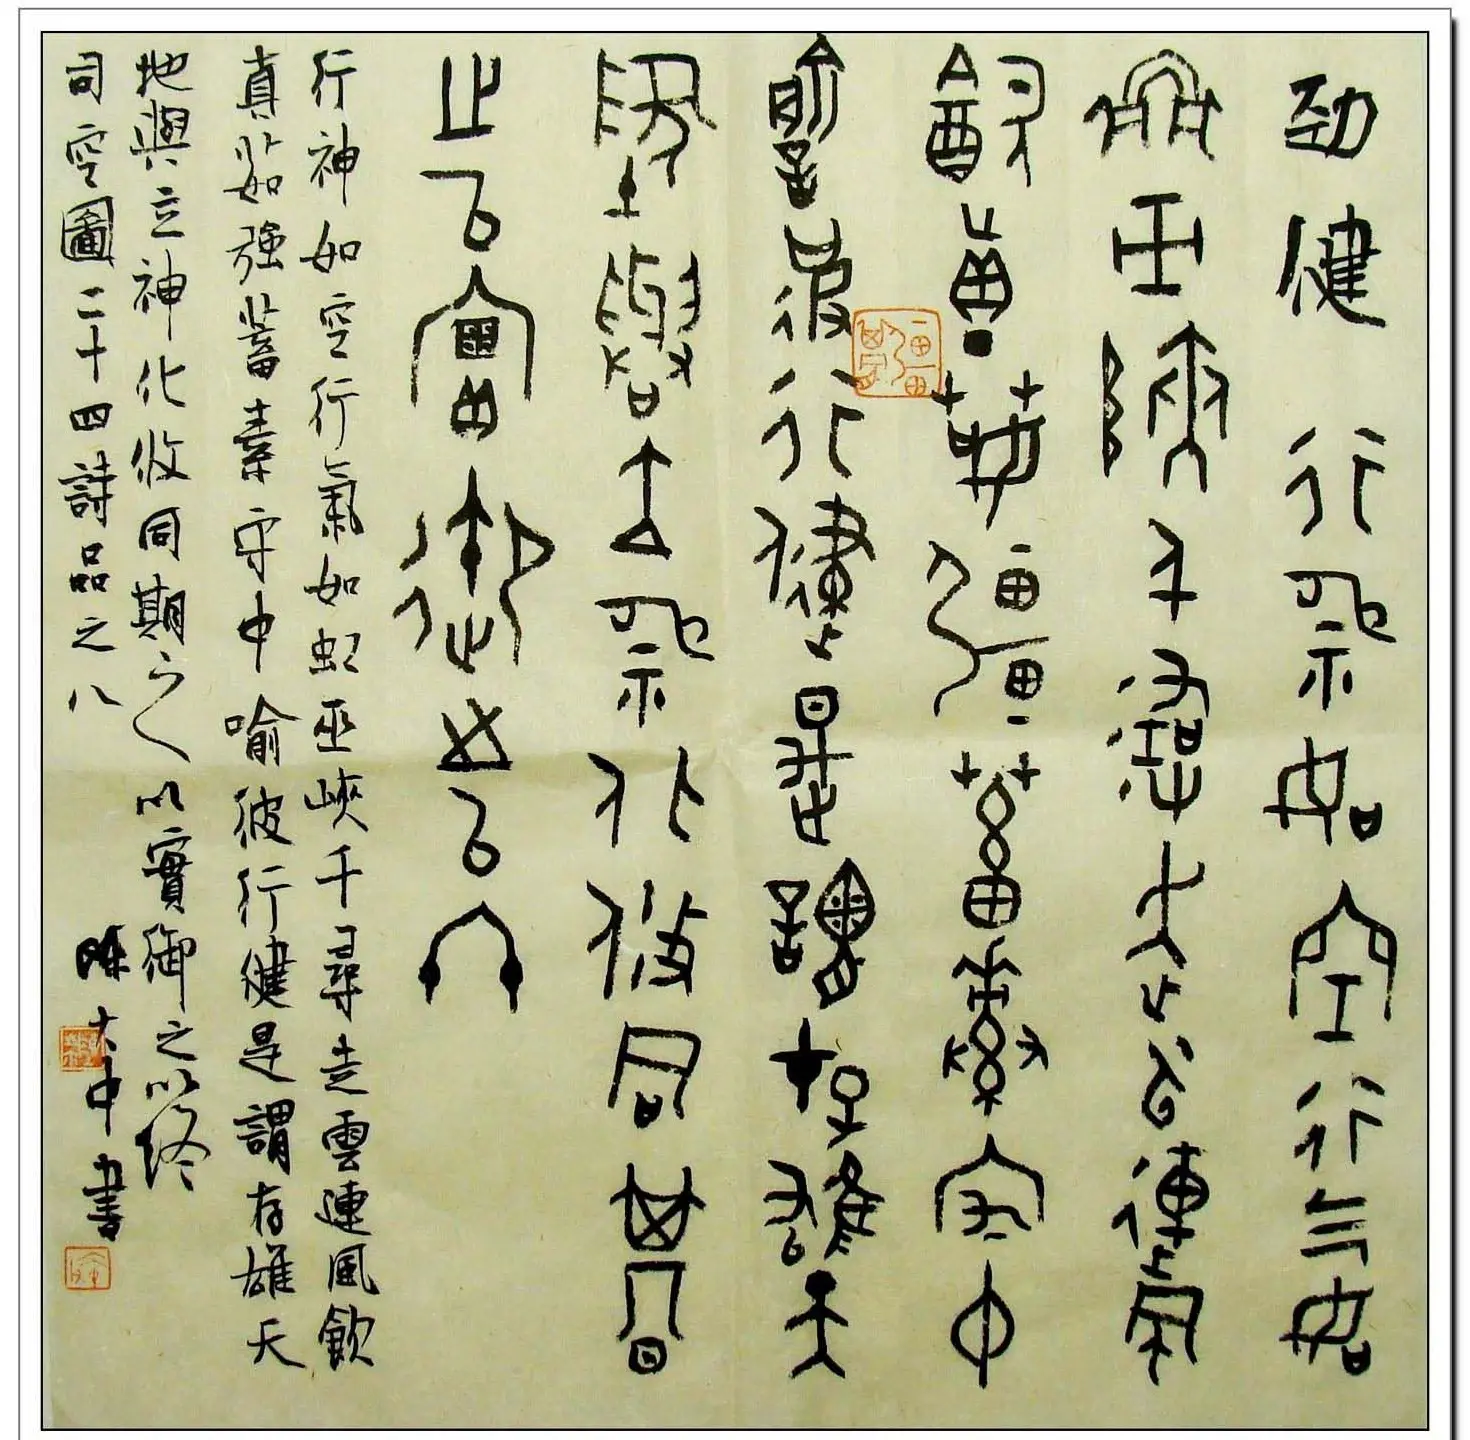 劲健 行神如空行气如
虹巫峽千尋走云連風
飲真茹強蓄素守中
喻彼行健是謂存雄天
地與立神化攸同期
之以實御之以終
行神如空行氣如虹巫峽千尋走雲連風飲
真茹強蓄素守中喻彼行健是謂存雄天
地與立神化攸同期之以實御之以終
司空圖二十四詩品之八
陳大中書